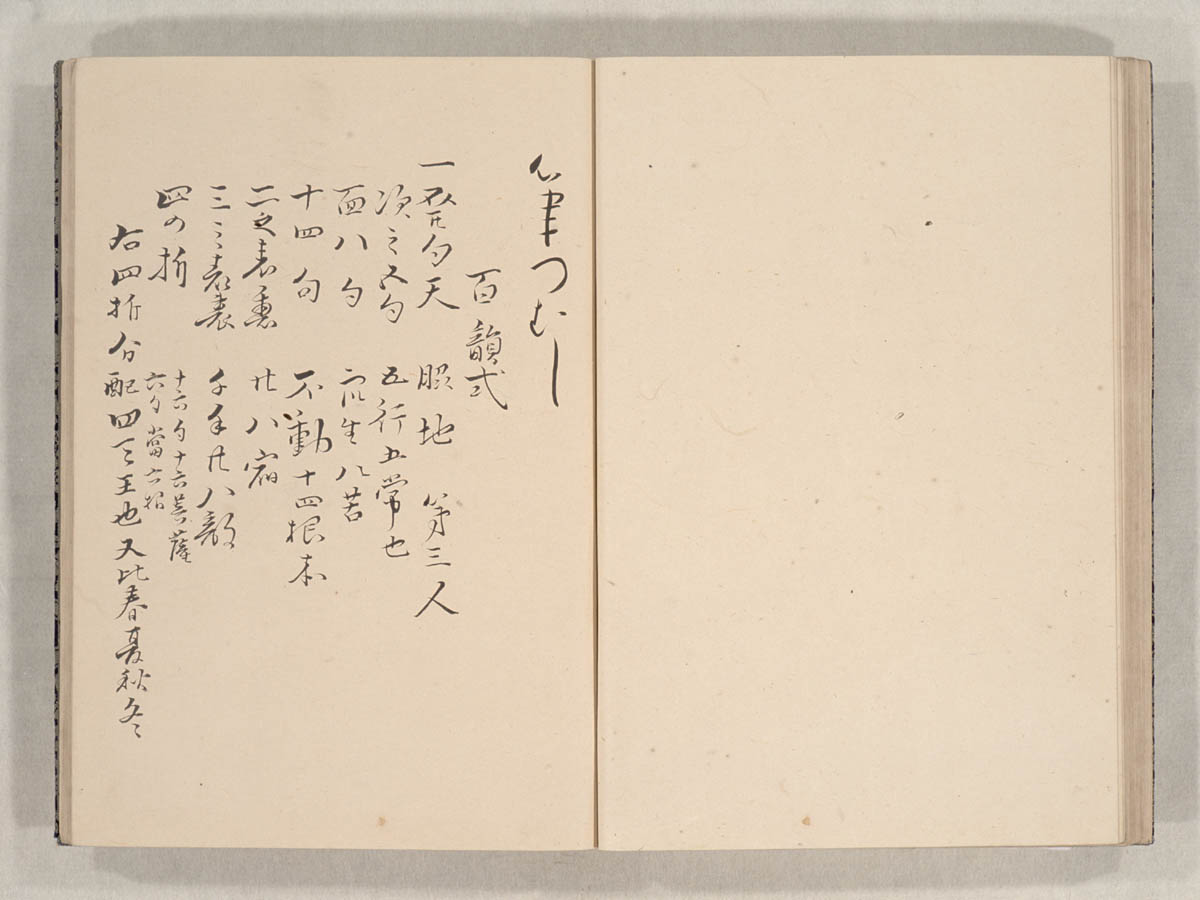 筆つむし
百韻式
一 発句天 脇地 第三人
次之五句 五行五常也
面八句 衆生八苦
十四句 不動十四根本
二之表裏 廿八宿
三之表裏 千手廿八部
四の折 十六句十六菩薩
六句當六
右四折分配四天王也又比春夏秋冬